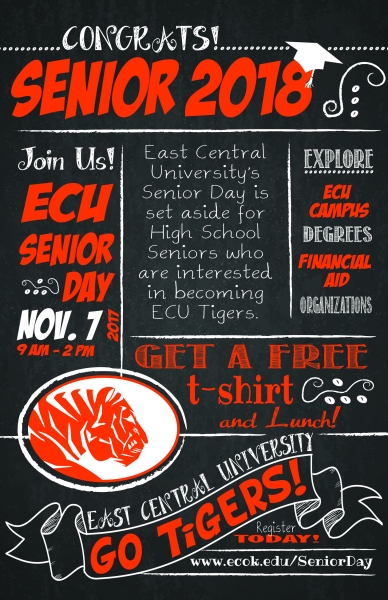 CONGRATS!
SENIOR 2018
Join Us!
ECU
SENIOR
DAY
NOV. 7
2017
9 AM - 2 PM
East Central
University's
Senior Day is
set aside for
High School
Seniors who
are interested
in becoming
ECU Tigers.
EXPLORE
ECU
CAMPUS
DEGREES
FINANCIAL
AID
ORGANIZATIONS
GET A FREE
t-shirt
and Lunch!
EAST CENTRAL UNIVERSITY
GO TIGERS!
Register
TODAY!
www.ecok.edu/SeniorDay